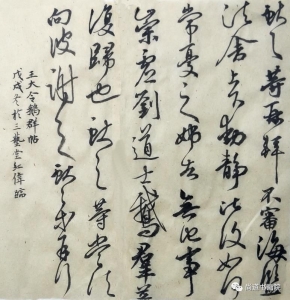 獻之等再拜不審海鹽
諸舍上下動靜比復如何
常憂之姊告無他事
崇虛劉道士鵝羣並
復歸也獻之等當須
向彼謝之獻之等再拜
王大令鵝群帖